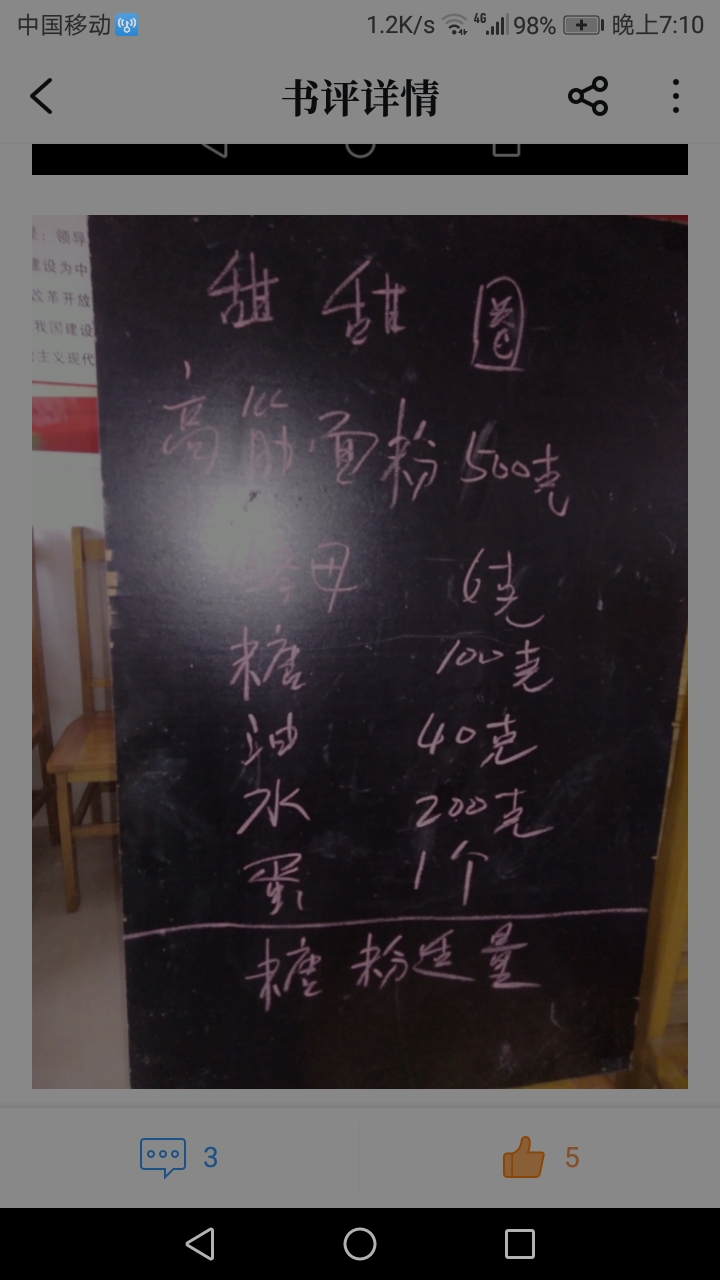 中国移动 1.2K/s 4G 98% 晚上7:10
书评详情
领导
建设为中
改革开放
我国建设
主义现代
甜甜圈
高筋面粉 500克
酵母 6克
糖 100克
油 40克
水 200克
蛋 1个
糖粉适量
3 5